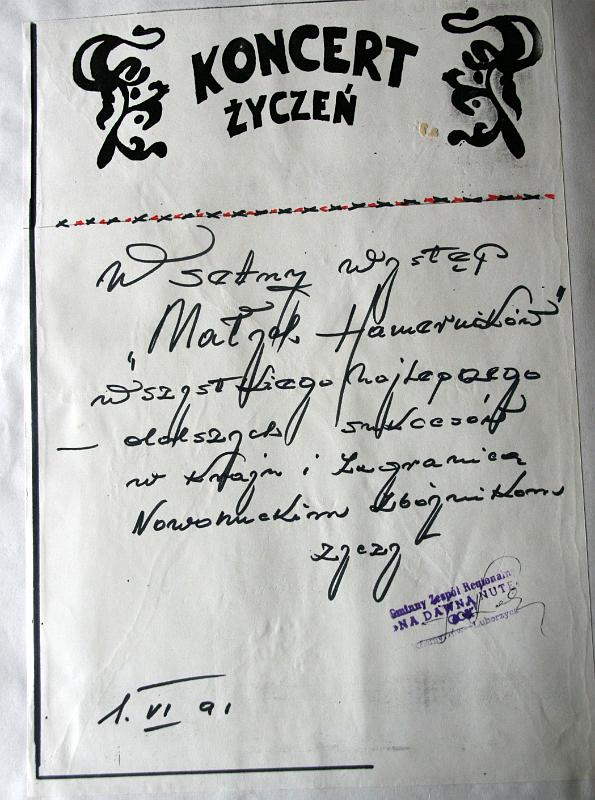 KONCERT
ŻYCZEŃ
W setny występ
"Małych Hamerników"
wszystkiego najlepszego
— dalszych sukcesów
w kraju i zagranicą
Nowohuckim Zbójnikom
życzy
Gminny Zespół Regionalny
»NA DAWNĄ NUTĘ«
GOK
Luborzyca
1. VI 91